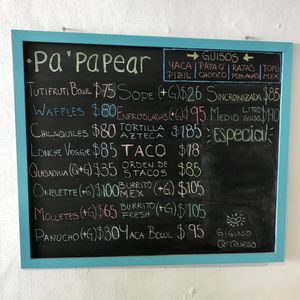 PA'PAPEAR
→ GUISOS ←
YACA PIBIL
PAPA Q/ CHORIZO
RAJAS POBLANAS
TOFU MEX
TUTIFRUTI BOWL $75
WAFFLES $80
CHILAQUILES $80
LONCHE VEGGIE $85
QUESADILLA (Q+G) $35
OMELETTE (+G) $100
MOLLETES (+G) $65
PANUCHO (+G) $30
SOPE (+G) $26
ENFRIJOLADAS (+G) $95
TORTILLA AZTECA $185
TACO $18
ORDEN DE 5 TACOS $85
BURRITO MEX (+G) $105
BURRITO FRESH (+G) $105
YACA BOWL $95
SINCRONIZADA $85
MEDIO LITRO GUISO $110
ESPECIAL
G: GUISO
Q: QUESO